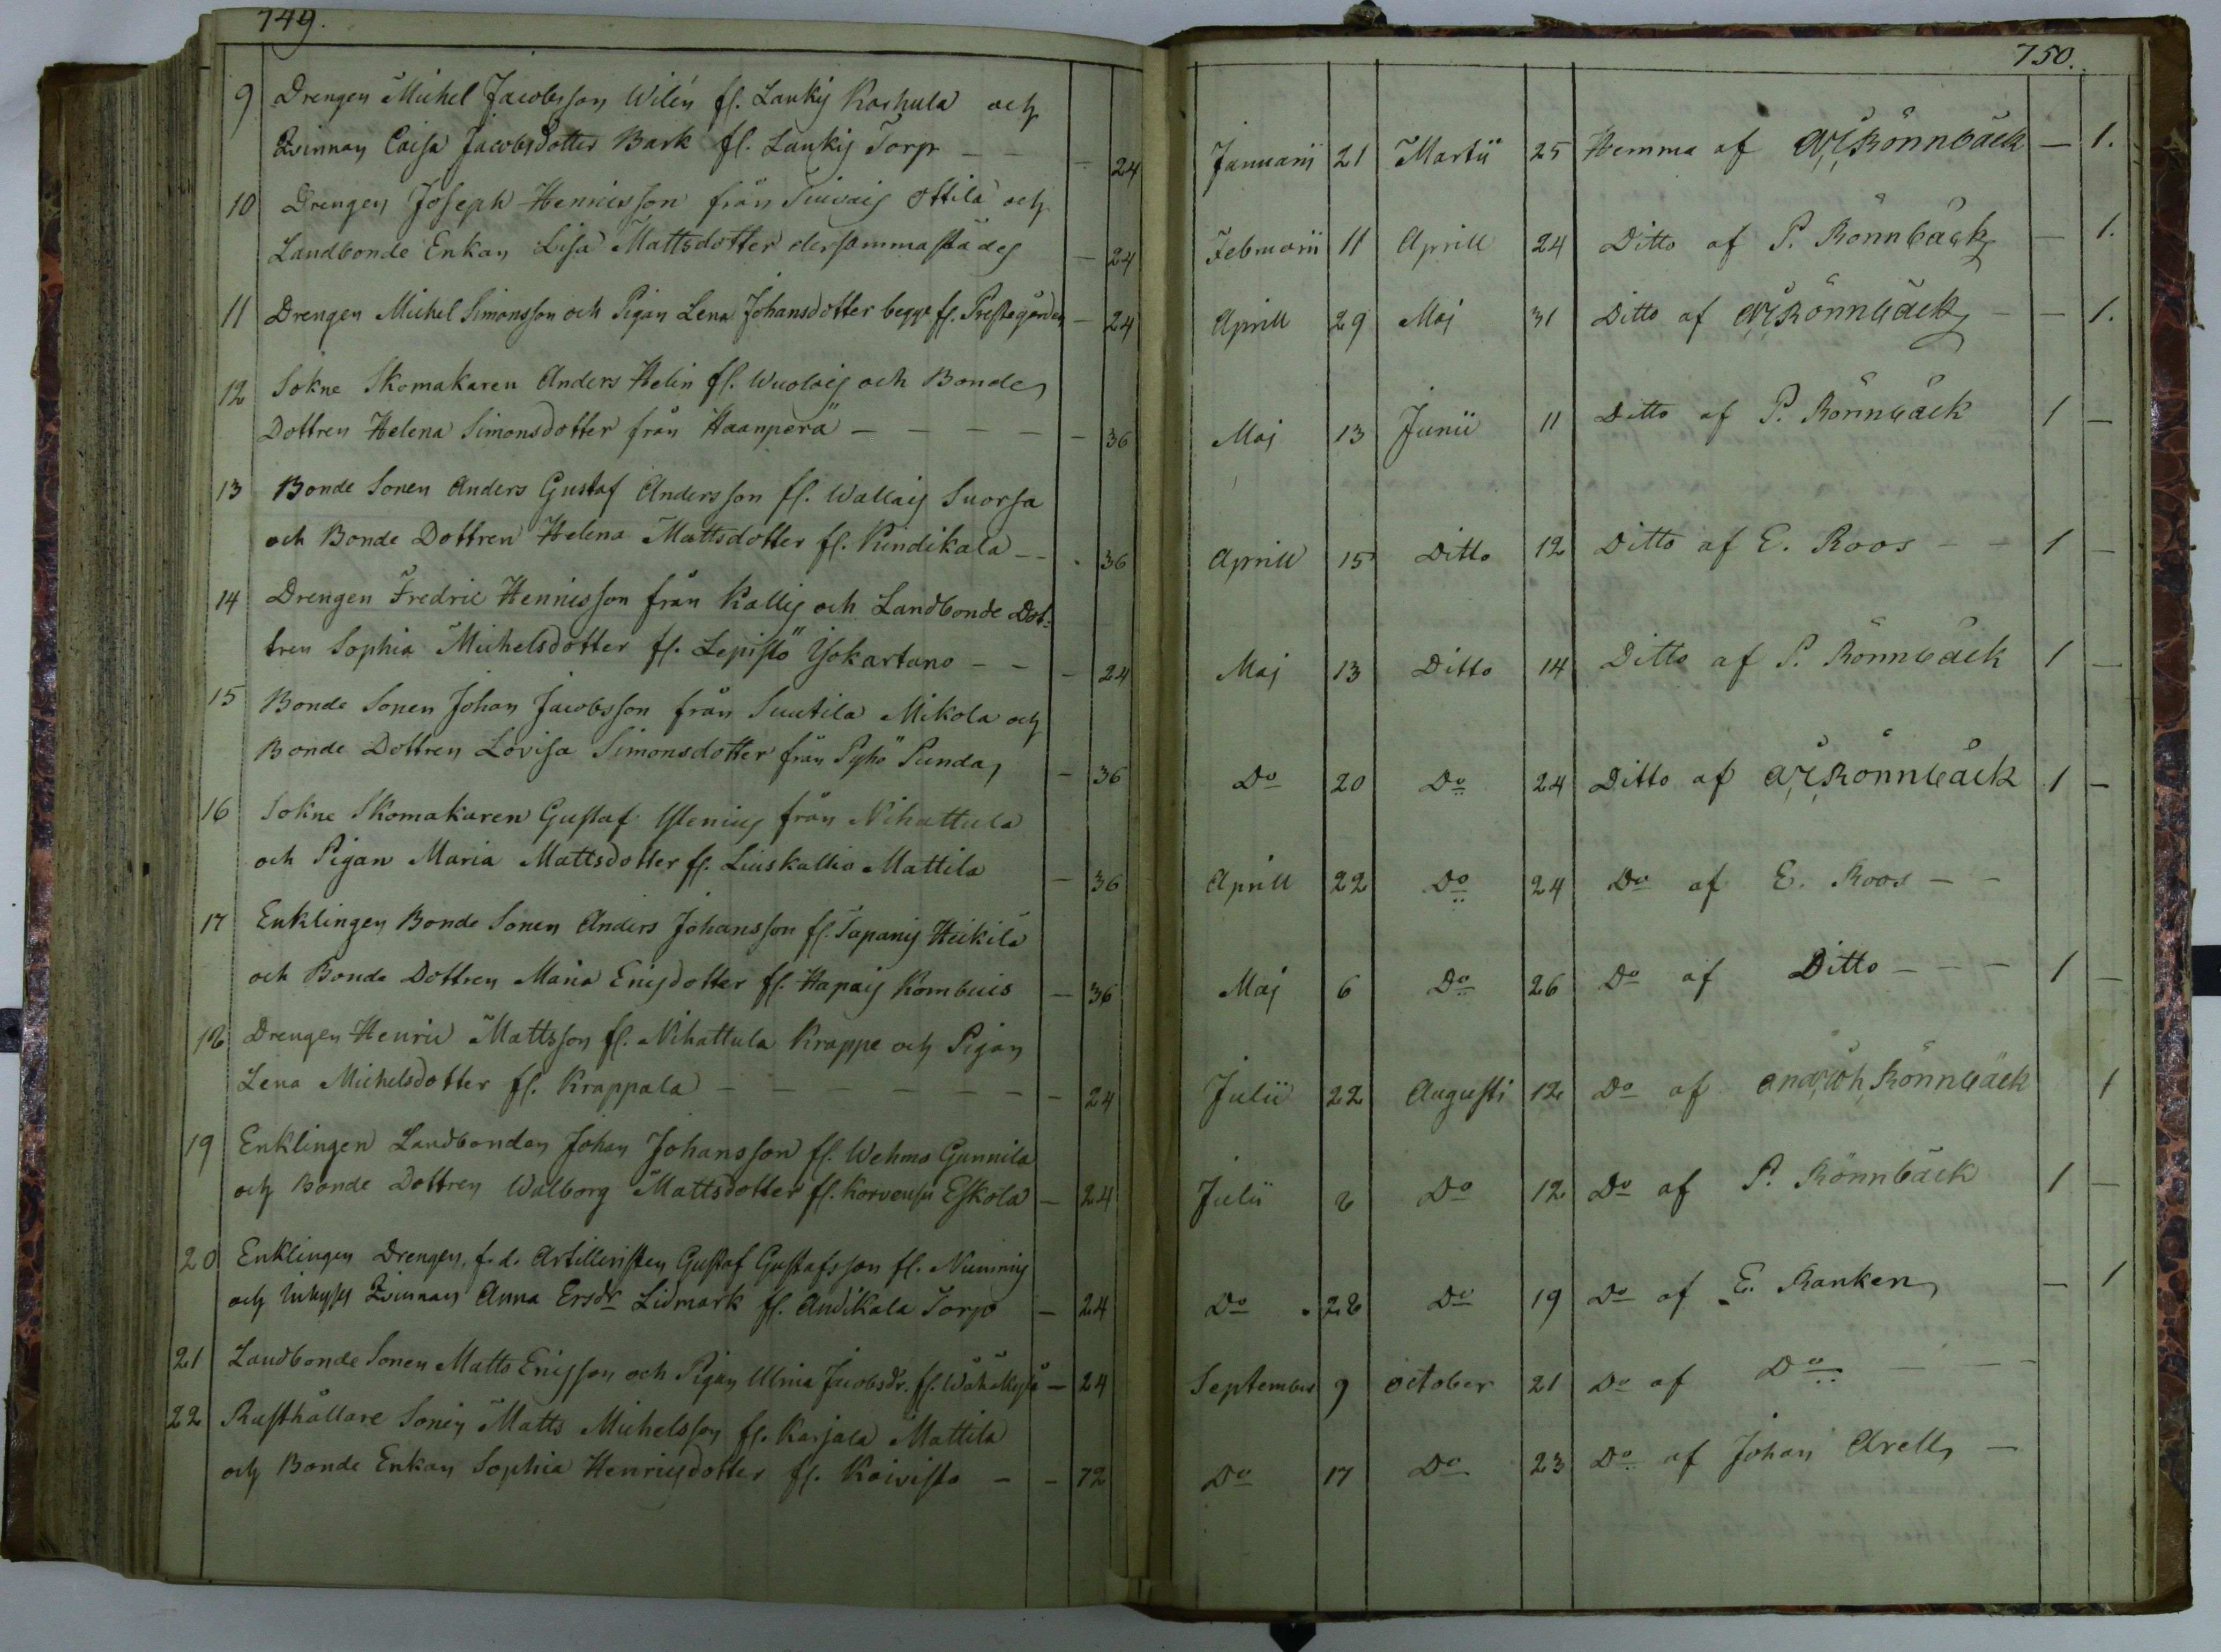 749.
9 Drengen Michel Jacobsson Wilén fr. Lauky Karhula och
Qvinnan Caisa Jacobsdotter Bark fr. Lauky Torp - - - 24
10 Drengen Joseph Henricsson från Ottila och
Landbonde Enkan Lisa Mattsdotter dersammastädes - 24
11 Drengen Michel Simonsson och Pigan Lena Johansdotter begge fr. Prestegården - 24
12 Sokne Skomakaren Anders Helin fr. och Bonde
Dottren Helena Simonsdotter från Haanperä - - - - - 36
13 Bonde Sonen Anders Gustaf Andersson fr. Suorsa
och Bonde Dottren Helena Mattsdotter fr. Kindikala - - . 36
14 Drengen Fredric Henricsson från Kallij och Landbonde Dot-
tren Sophia Michelsdotter fr. Lepistö Yökartano - - - 24
15 Bonde Sonen Johan Jacobsson från Suutila Mikola och
Bonde Dottren Lovisa Simonsdotter från Pyhö Punda, - 36
16 Sokne Skomakaren Gustaf från Nihattula
och Pigan Maria Mattsdotter fr. Liuskallio Mattila - 36
17 Enklingen Bonde Sonen Anders Johansson fr. Tapanij Heikilä
och Bonde Dottren Maria Ericsdotter fr. - 36
18 Drengen Henric Mattsson fr. Nihattula Krappe och Pigan
Lena Michelsdotter fr. Krappala - - - - - - 24
19 Enklingen Landbonden Johan Johansson fr. Wehmo Gunnila
och Bonde Dottren Walborg Mattsdotter fr. Korvensu Eskola - 24
20 Enklingen Drengen, f. d. Artilleristen Gustaf Gustafsson fr. Nummij
och Inhyses Qvinnan Anna Ersdr Lidmark fr. Andikala Torp - 24
21 Landbonde Sonen Matts Ericsson och Pigan Ulrica Jacobsdr. fr. - 24
22 Rusthållare Sonen Matts Michelsson fr. Karjala Mattila
och Bonde Enkan Sophia Henricsdotter fr. Koivisto - - 72
750.
Januarii 21 Martii 25 Hemma af Rönnbäck - 1.
Februarii 11 Aprill 24 Ditto af P. Rönnbäck - 1.
Aprill 29 Maj 31 Ditto af Rönnbäck - - 1.
Maj 13 Junii 11 Ditto af P. Rönnbäck 1 -
Aprill 15 Ditto 12 Ditto af E. Roos - - 1 -
Maj 13 Ditto 14 Ditto af P. Rönnbäck 1 -
Do 20 Do 24 Ditto af Rönnbäck 1 -
Aprill 22 Do 24 Do af E. Roos - -
Maj 6 Do 26 Do af Ditto - - - 1 -
Julii 22 Augusti 12 Do af Rönnbäck 1
Julii 8 Do 12 Do af P. Rönnbäck 1 -
Do . 28 Do 19 Do af E. Ranken - 1
September 9 october 21 Do af Do - - -
Do 17 Do 23 Do af Johan Arell -